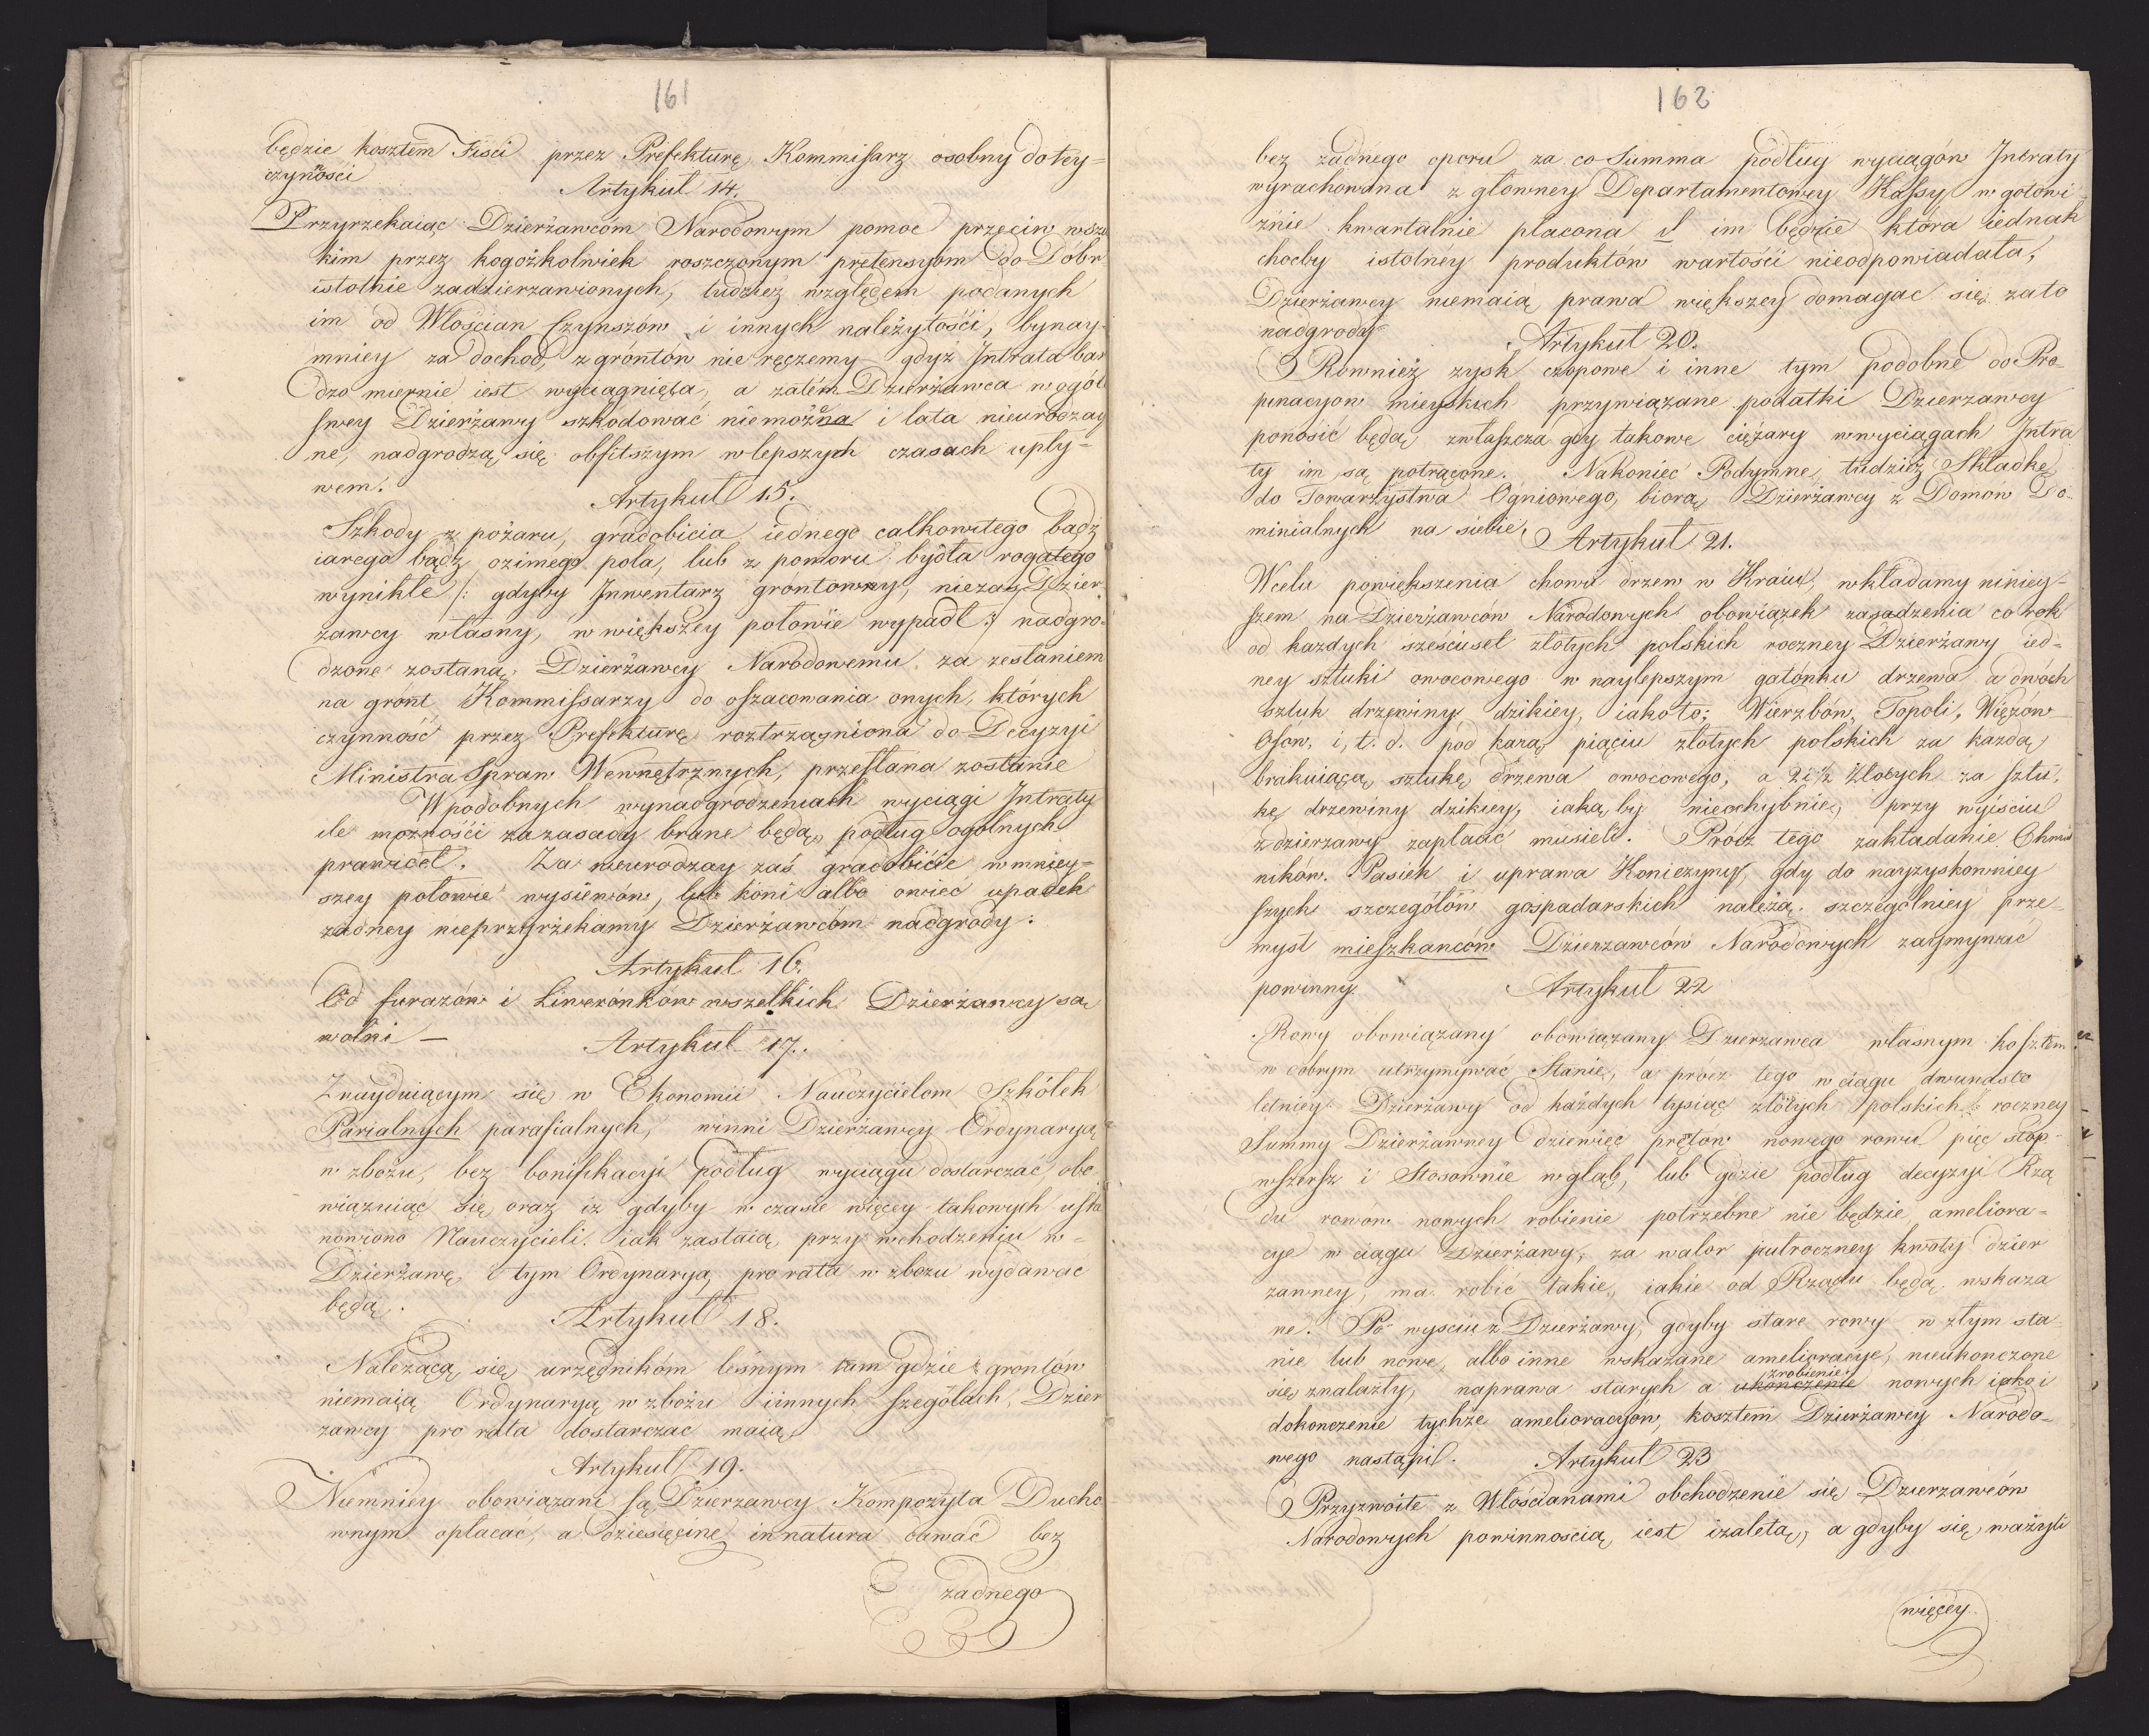 161
będzie kosztem Fisci przez Prefekturę Kommissarz osobny do tey=
czynności
Artykuł 14.
Przyrzekaiąc Dzierżawcóm Narodowym pomoc przeciw wsze
kim przez kogożkolwiek roszczonym pretensyom do Dóbr
istotnie zadzierzawionych, tudzież względem podanych
im od Włościan Czynszów i innych należytości, bynay-
mniey za dochod z gróntów nie ręczemy gdyż Intrata bar
dzo miernie iest wyciągnięta, a zatém Dzierżawca w ogóle
swey Dzierżawy szkodować niemoże i lata nieurodzay
ne, nadgrodzą się obfitszym w lepszych czasach upły=
wem.
Artykuł 15.
Szkody z pożaru, gradobicia iednego całkowitego bądź
iarego bądź ozimego pola, lub z pomoru bydła rogatego
wynikłe /: gdyby Inwentarz grontowny, niezaś Dzier
żawcy własny, w większey połowie wypadł :/ nadgro-
dzone zostaną Dzierżawcy Narodowemu za zesłaniem
na gront Kommissarzy do oszacowania onych, których
czynność przez Prefekturę roztrząśniona do Decyzyi
Ministra Spraw Wewnętrznych, przesłana zostanie
W podobnych wynadgrodzeniach wyciągi Intraty
ile możności za zasady brane będą, podług ogolnych
prawideł. Za nieurodzay zaś gradobicie w mniey=
szey połowie wysiewów, lub koni albo owiec upadek
żadney nieprzyrzekamy Dzierżawcóm nadgrody.
Artykuł 16.
Od furażów i Liwerónków wszelkich Dzierżawcy są
wolni —
Artykuł 17.
Znayduiącym się w Ekonomii Nauczycielom Szkólek
Parialnych parafialnych, winni Dzierżawcy Ordynaryą
w zbożu, bez bonifikacyi podług wyciągu dostarczać, obo
wiązuiąc się oraz iż gdyby w czasie więcey takowych usta
nowiono Nauczycieli. iak zastaią przy wchodzeniu w=
Dzierżawę, i tym Ordynaryą pro rata w zbożu wydawać
będą.
Artykuł 18.
Należącą się urzędnikóm leśnym tam gdzie grontów
niemaią Ordynaryą w zbożu i innych szegółach, Dzier
żawcy pro rata dostarczac maią
Artykuł 19.
Niemniey obowiązani są Dzierzawcy Kompozyta Ducho
wnym opłacać, a dziesięcinę in natura dawać bez
żadnego
162
bez żadnego oporu za co Summa podług wyciągów Intraty
wyrachowana z główney Departamentowey Kassy w gotowi
znie kwartalnie płacona im będzie która iednak
choćby istotnéy produktów wartości nieodpowiadała,
Dzierżawcy niemaią prawa większey domagac się zato
nadgrody
Artykuł 20.
Rownież zysk czopowe i inne tym podobne do Pro-
pinacyow mieyskich przywiązane podatki Dzierzawcy
ponosic będą zwłaszcza gdy takowe ciężary w wyciągach Intra
ty im są potrącone. Nakoniec Podymne, tudzież Składkę
do Towarzystwa Ogniowego, biorą Dzierżawcy z Domów Do-
minialnych na siebie.
Artykuł 21.
W celu powiększenia chowu drzew w Kraiu, wkładamy niniey-
szem na Dzierżawców Narodowych obowiązek zasadzenia co rok
od kazdych sześciuset złotych polskich roczney Dzierżawy ied=
ney sztuki owocowego w naylepszym gatónku drzewa a dwóch
sztuk drzewiny dzikiey, iakoto: Wierzbów, Topoli, Więzów
Osow, i, t. d. pod karą pięciu złotych polskich za każdą
brakuiącą sztukę drzewa owocowego, a 2½ złotych za sztu-
kę drzewiny dzikiey, iaką by nieochybnie, przy wyiściu
z dzierzawy zapłacić musieli. Prócz tego zakładanie Chmiel
ników. Pasiek i uprawa Koniczyny, gdy do nayzyskowniey
szych szczegółów gospadarskich należą szczególniey prze-
mysł mieszkanców Dzierzawców Narodowych zaymywać
powinny.
Artykuł 22
Rowy obowiązany obowiązany Dzierżawca własnym kosztem
w dobrym utrzymywać Stanie, a prócz tego w ciągu dwunasto
letniey Dzierżawy od każdych tysiąc złotych polskich roczney
Summy Dzierżawney dziewięć prętow nowego rowu pięć stop-
wszersz i Stosownie w głąb, lub gdzie podług decyzyi Rzą
du rowów nowych robienie potrzebne nie będzie ameliora=
cye w ciągu Dzierżawy, za walor pułroczney kwoty dzier
zawney, ma robić takie, iakie od Rządu będą wskaza
ne. Po wysciu z Dzierżawy, gdyby stare rowy w złym sta-
nie lub nowe, albo inne wskazane amelioracye, nieukonczone
się znalazły, naprawa starych a ukończenie zrobienie nowych iako i
dokonczenie tychże amelioracyów, kosztem Dzierżawcy Narodo-
wego nastąpił.
Artykuł 23
Przyzwoite z Włoscianami obchodzenie się Dzierzawców
Narodowych powinnoscią iest i zaletą, a gdyby się ważyli
więcey